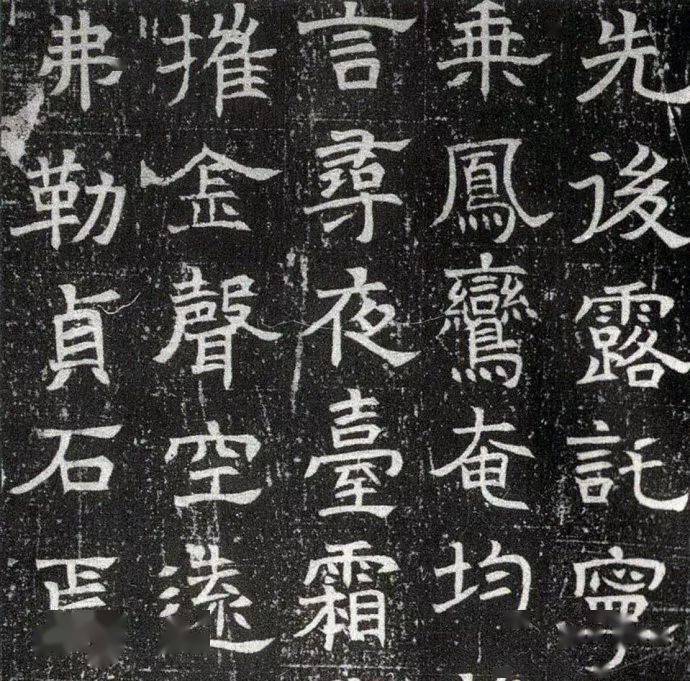 先後露託寧
乗鳳鸞奄均
言尋夜臺霜
摧金聲空
弗勒貞石